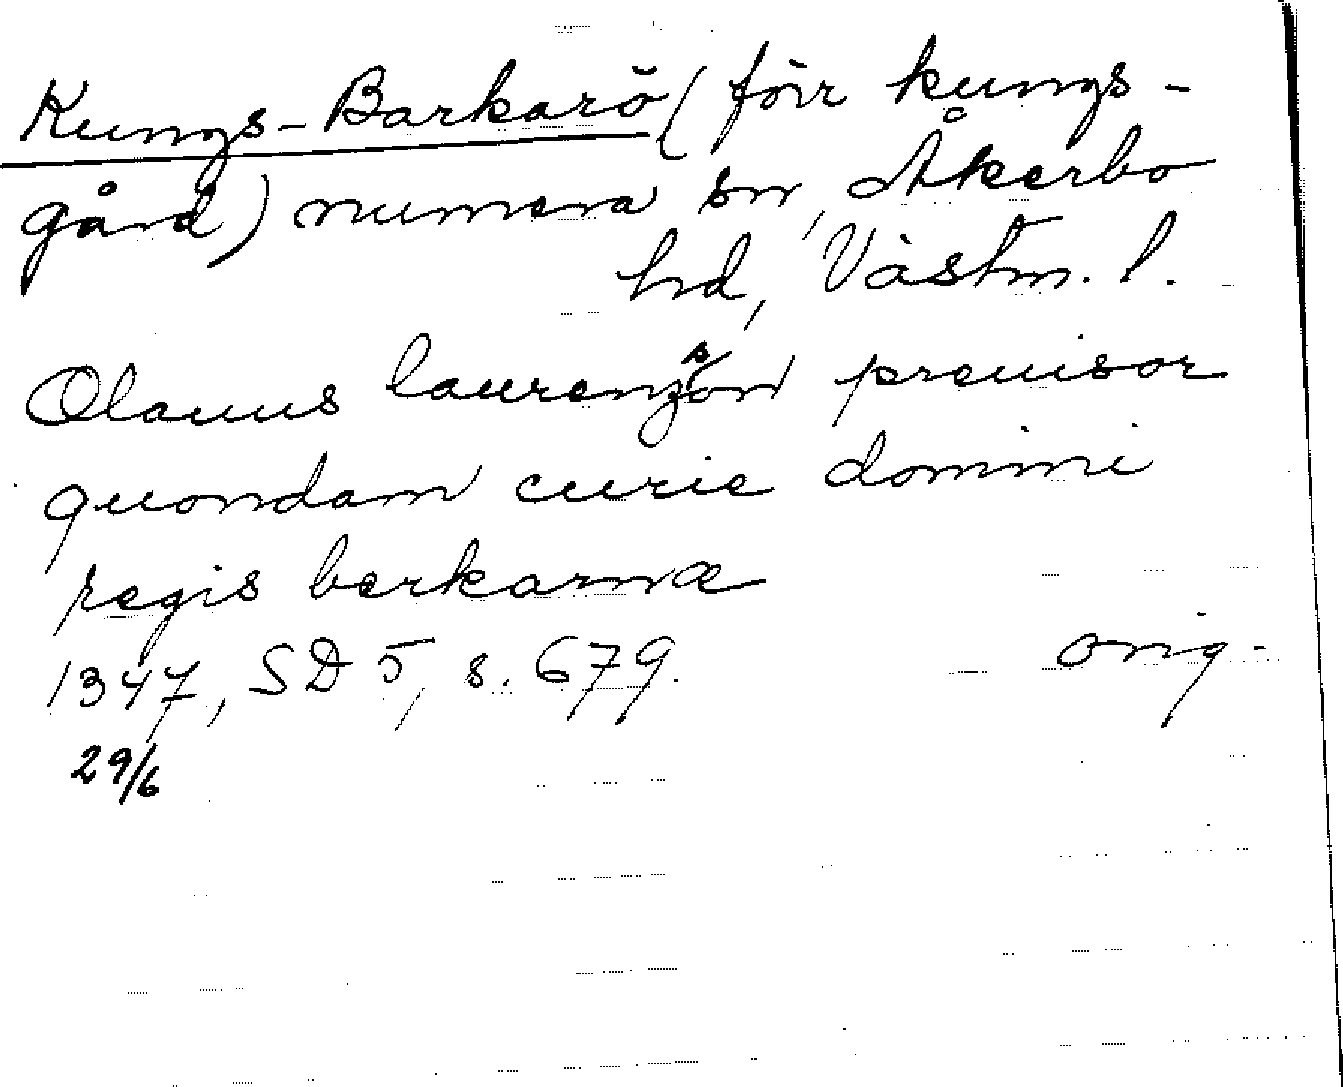 Kungs-Barkarö (förr kungs-
gård) numera sn, Åkerbo
hd, Västm. l.
Olauus laurenzson preuisor
quondam curie domini
regis berkarnæ
1347, SD 5, s. 679. orig.
29/6